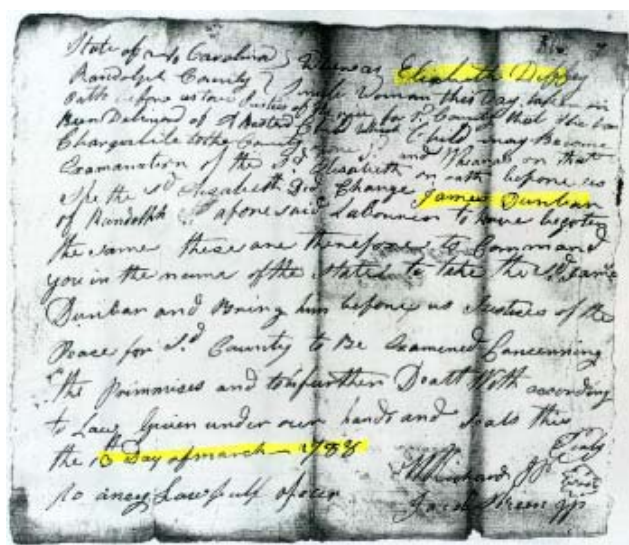 State of No Carolina } Whereas Elizabeth Duffey
Randolph County } Single Woman this Day taken on
Oath before us two Justices of the for Sd. County that She has
Been Delivered of A Basterd Child Which Child may Become
Chargeable to the County and Whereas on that
Examanation of the Sd. Elisabeth on oath before us
She the Sd Elizabeth Did Charge James Dunban
of Randolph afore said Labourer to have begoten
the same these are therefore to Command
you in the name of the State to take the Sd. James
Dunban and Bring him before us Justices of the
Peace for Sd. County to Be Examened Concerning
the primmises and to be further Dealt With according
to Law Given under our hands and Seals this
the 13th Day of march 1788
Richard JP
to aney Lawfull oficer Jacob JP